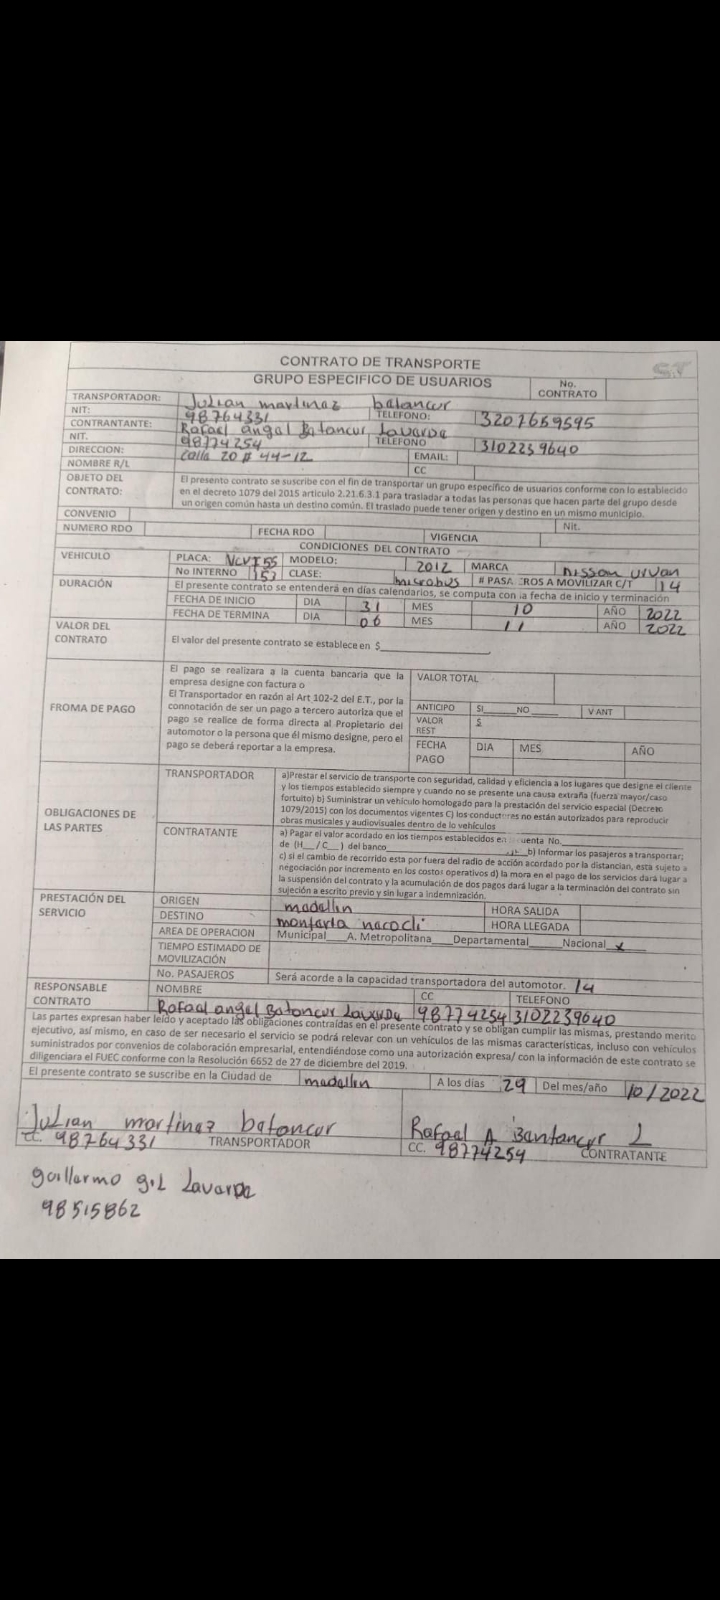 CONTRATO DE TRANSPORTE
GRUPO ESPECIFICO DE USUARIOS
No. CONTRATO
TRANSPORTADOR: Julian martinez batancur
NIT: 98764331 TELEFONO: 3207659595
CONTRANTANTE: Rafael angel Batancur Lavarda
NIT. 98774254 TELEFONO 3102239640
DIRECCION: calla 20 # 44-12 EMAIL:
NOMBRE R/L CC
OBJETO DEL CONTRATO: El presento contrato se suscribe con el fin de transportar un grupo específico de usuarios conforme con lo establecido
en el decreto 1079 del 2015 articulo 2.21.6.3.1 para trasladar a todas las personas que hacen parte del grupo desde
un origen común hasta un destino común. El traslado puede tener origen y destino en un mismo municipio.
CONVENIO Nit.
NUMERO RDO FECHA RDO VIGENCIA
CONDICIONES DEL CONTRATO
VEHICULO PLACA: MODELO: 2012 MARCA nissan
No INTERNO 153 CLASE: microbus # PASA EROS A MOVILIZAR C/T 14
DURACIÓN El presente contrato se entenderá en días calendarios, se computa con la fecha de inicio y terminación
FECHA DE INICIO DIA 31 MES 10 AÑO 2022
FECHA DE TERMINA DIA 06 MES 11 AÑO 2022
VALOR DEL CONTRATO El valor del presente contrato se establece en $
FROMA DE PAGO
El pago se realizara a la cuenta bancaria que la
empresa designe con factura o
El Transportador en razón al Art 102-2 del E.T., por la
connotación de ser un pago a tercero autoriza que el
pago se realice de forma directa al Propietario del
automotor o la persona que él mismo designe, pero el
pago se deberá reportar a la empresa.
VALOR TOTAL
ANTICIPO SI____NO____ V ANT
VALOR REST $
FECHA PAGO DIA MES AÑO
OBLIGACIONES DE LAS PARTES
TRANSPORTADOR a)Prestar el servicio de transporte con seguridad, calidad y eficiencia a los lugares que designe el cliente
y los tiempos establecido siempre y cuando no se presente una causa extraña (fuerza mayor/caso
fortuito) b) Suministrar un vehículo homologado para la prestación del servicio especial (Decreto
1079/2015) con los documentos vigentes C) los conductores no están autorizados para reproducir
obras musicales y audiovisuales dentro de lo vehículos
CONTRATANTE a) Pagar el valor acordado en los tiempos establecidos en uenta No.
de (H__/C__) del banco b) Informar los pasajeros a transportar;
c) si el cambio de recorrido esta por fuera del radio de acción acordado por la distancian, esta sujeto a
negociación por incremento en los costos operativos d) la mora en el pago de los servicios dará lugar a
la suspensión del contrato y la acumulación de dos pagos dará lugar a la terminación del contrato sin
sujeción a escrito previo y sin lugar a indemnización.
PRESTACIÓN DEL SERVICIO
ORIGEN madallin HORA SALIDA
DESTINO montaria nacocli HORA LLEGADA
AREA DE OPERACION Municipal___A. Metropolitana___Departamental____Nacional x
TIEMPO ESTIMADO DE MOVILIZACIÓN
No. PASAJEROS Será acorde a la capacidad transportadora del automotor. 14
RESPONSABLE CONTRATO NOMBRE CC TELEFONO
Rafael angel Batancur Lavarda 98774254 3102239640
Las partes expresan haber leído y aceptado las obligaciones contraídas en el presente contrato y se obligan cumplir las mismas, prestando merito
ejecutivo, así mismo, en caso de ser necesario el servicio se podrá relevar con un vehículos de las mismas características, incluso con vehículos
suministrados por convenios de colaboración empresarial, entendiéndose como una autorización expresa/ con la información de este contrato se
diligenciara el FUEC conforme con la Resolución 6652 de 27 de diciembre del 2019.
El presente contrato se suscribe en la Ciudad de madallin A los días 29 Del mes/año 10/2022
Julian martinaz batancur Rafael A Bantancur L
CC. 98764331 TRANSPORTADOR CC. 98774254 CONTRATANTE
guillarmo gil Lavarda
98515862